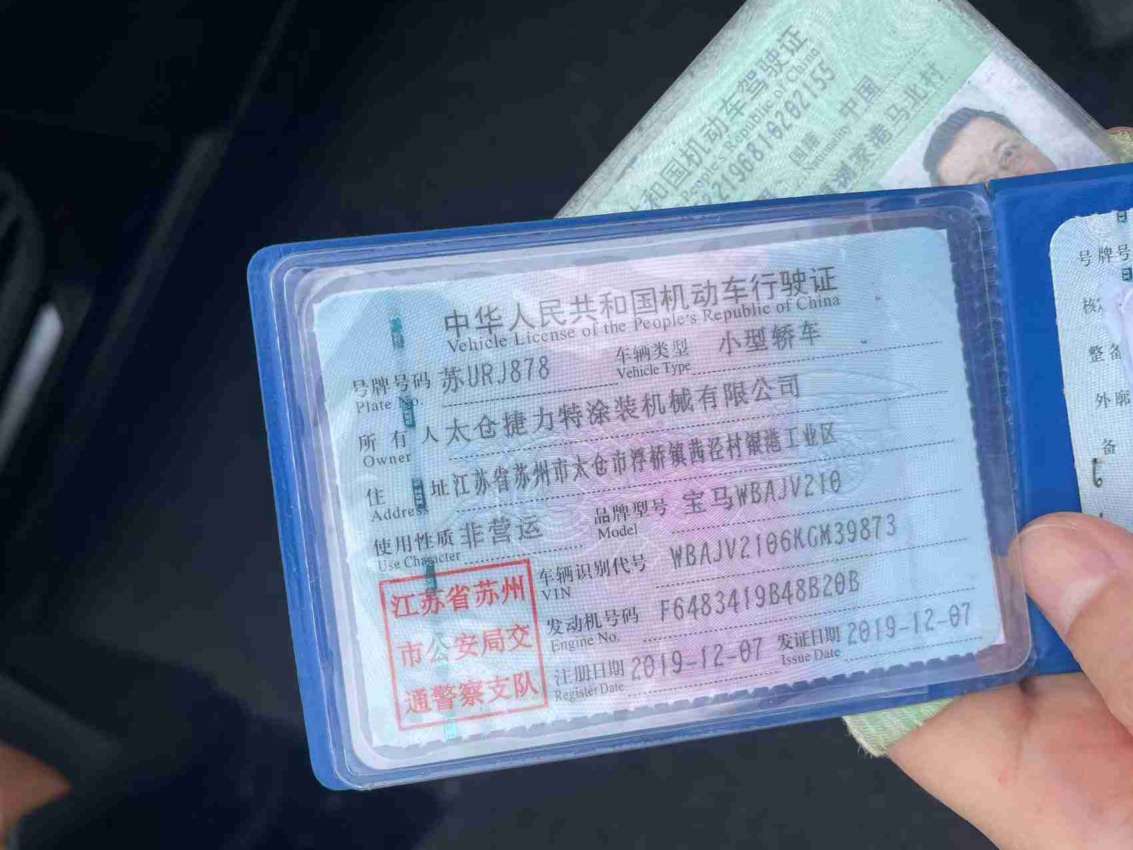 和国机动车驾驶证
People's Republic of China
2196810202155
国籍 中国
Nationality
港马北村
中华人民共和国机动车行驶证
Vehicle License of the People's Republic of China
号牌号码 苏URJ878 车辆类型 小型轿车
Plate No. Vehicle Type
所有人 太仓捷力特涂装机械有限公司
Owner
住址 江苏省苏州市太仓市浮桥镇茜泾村银港工业区
Address
使用性质 非营运 品牌型号 宝马WBAJV210
Use Character Model
江苏省苏州
市公安局交
通警察支队
车辆识别代号 WBAJV2106KGM39873
VIN
发动机号码 F6483419B48B20B
Engine No.
注册日期 2019-12-07 发证日期 2019-12-07
Register Date Issue Date
号牌号
核
整备
外廓
备